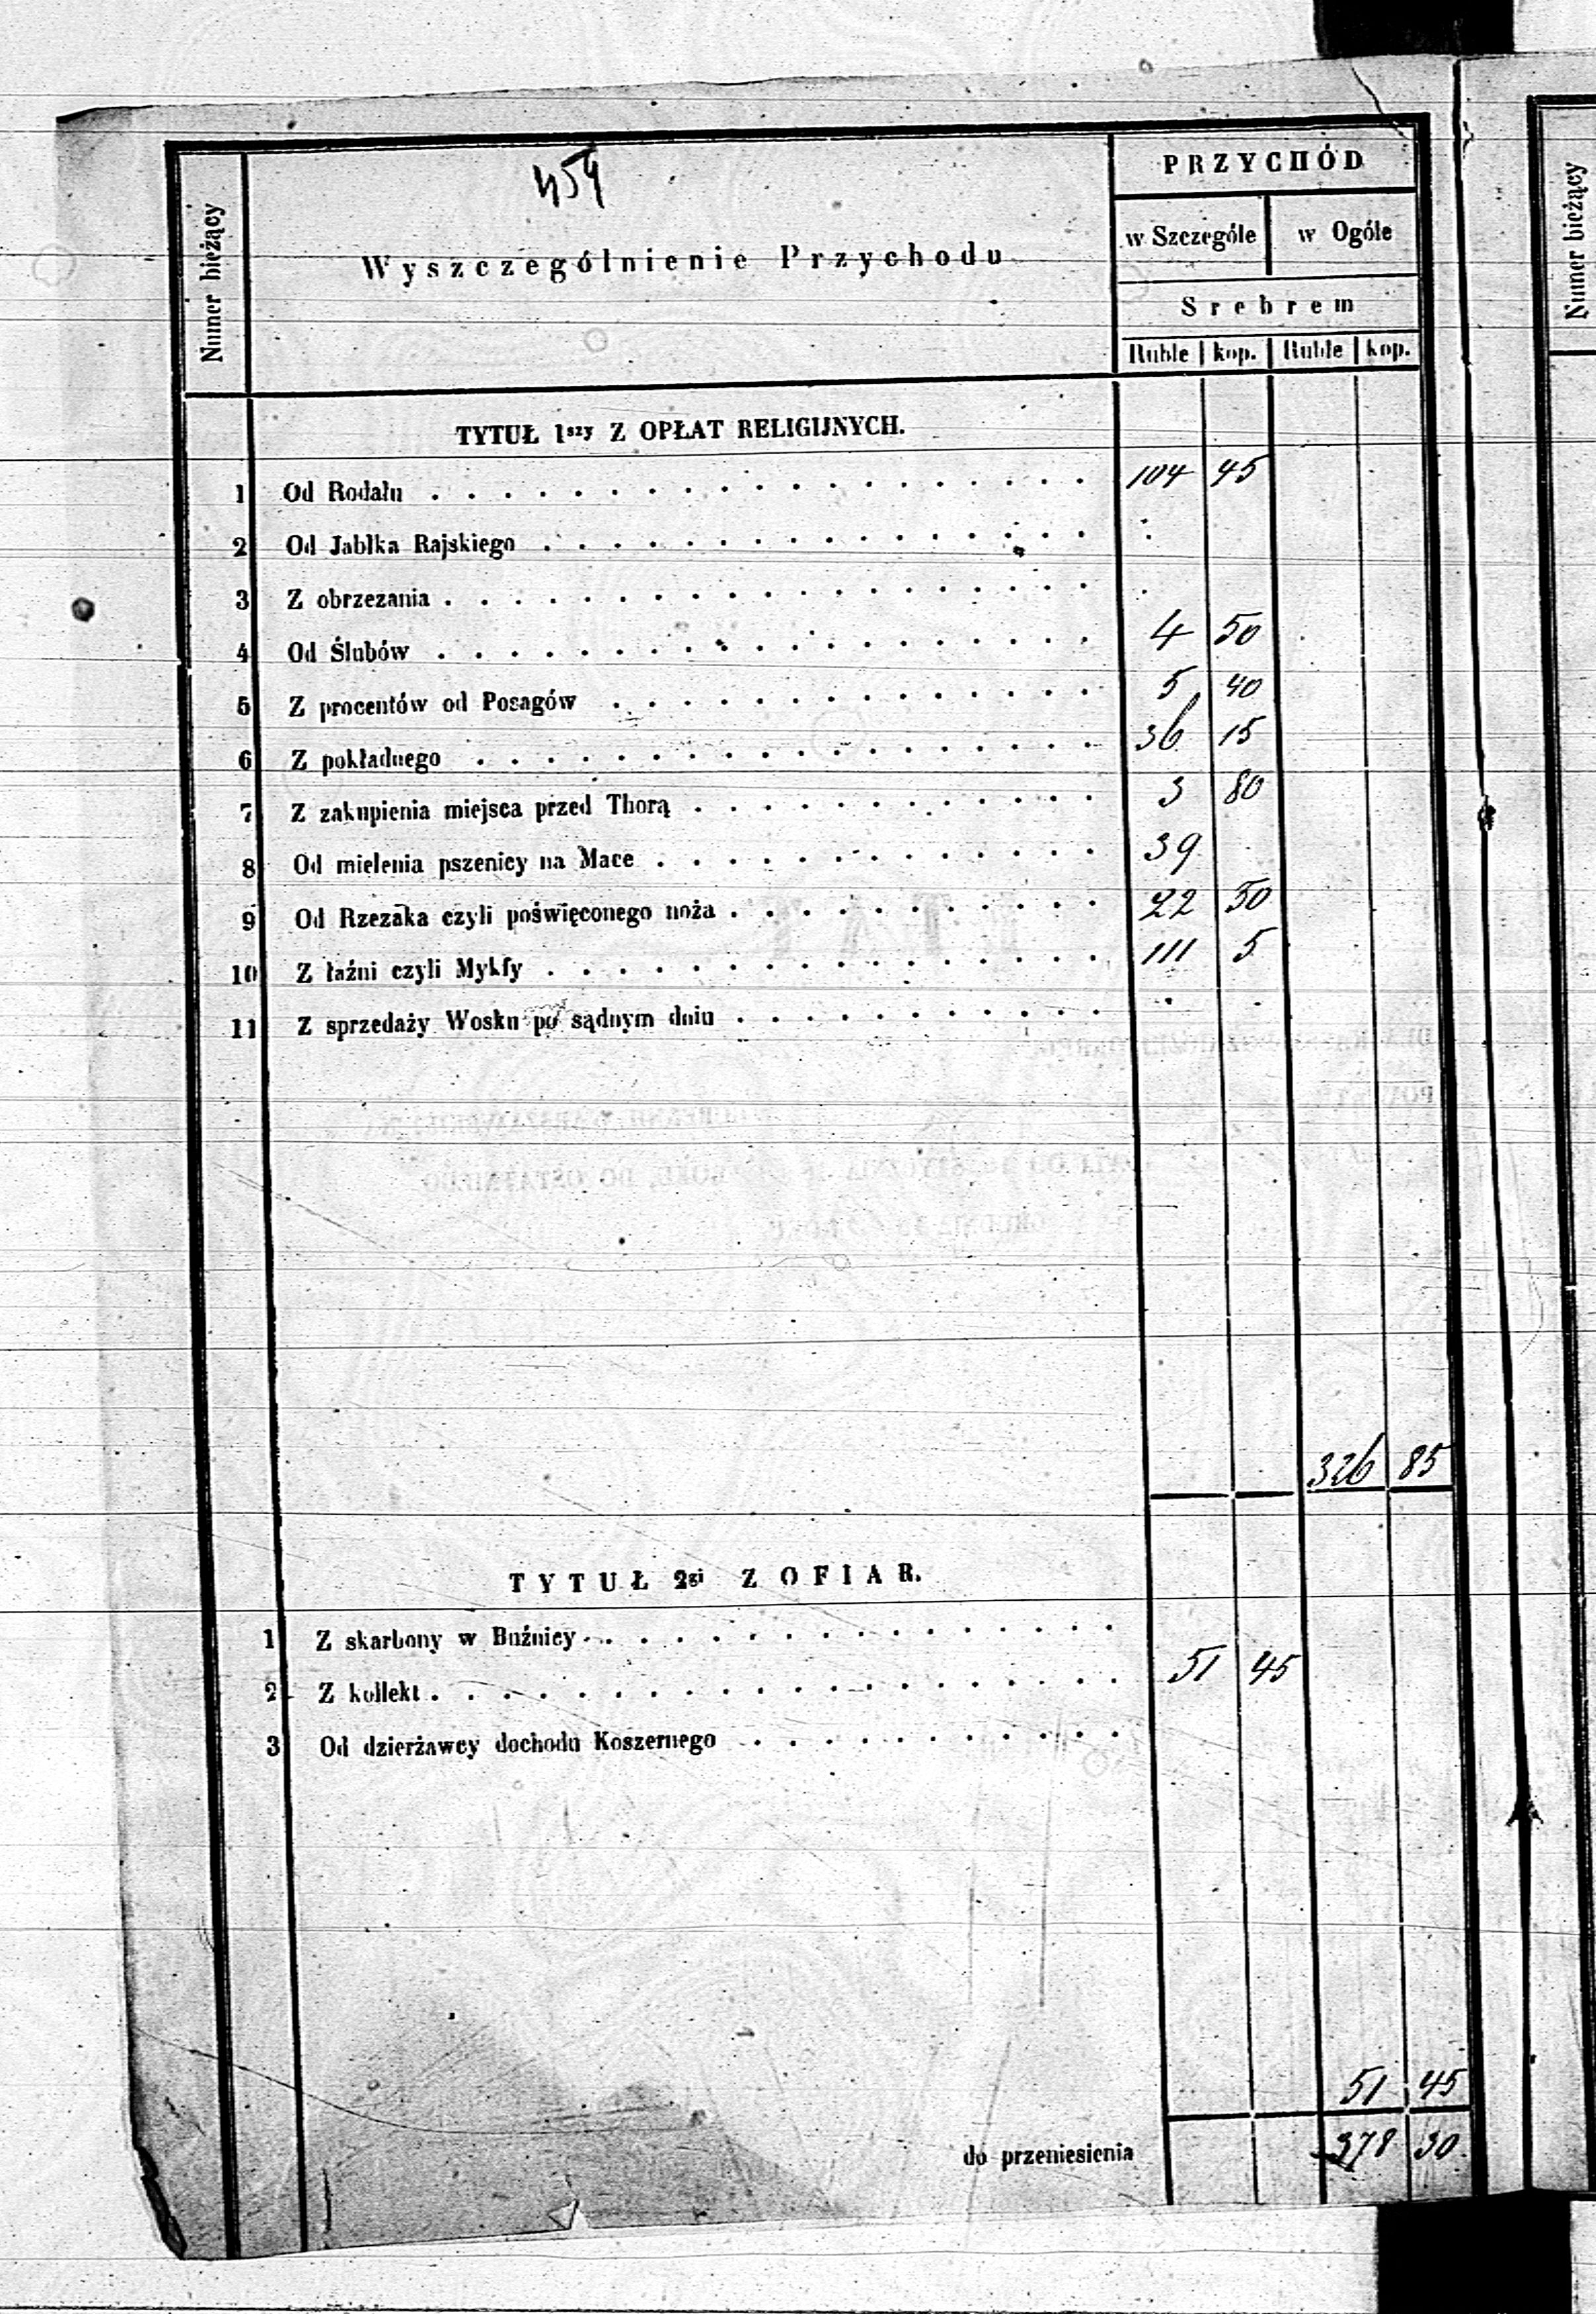 454
PRZYCHÓD
Numer bieżący
Wyszczególnienie Przychodu
w Szczególe w Ogóle
Srebrem
Ruble kop. Ruble kop.
TYTUŁ 1szy Z OPŁAT RELIGIJNYCH.
1 Od Rodału . . . . . . . . . . . . . . . . . . . 104 45
2 Od Jabłka Rajskiego . . . . . . . . . . . . . . . .
3 Z obrzezania . . . . . . . . . . . . . . . . . . .
4 Od Ślubów . . . . . . . . . . . . . . . . . . . 4 50
5 Z procentów od Posagów . . . . . . . . . . . . . . 5 40
6 Z pokładnego . . . . . . . . . . . . . . . . . . 36 15
7 Z zakupienia miejsca przed Thorą . . . . . . . . . . . . 3 80
8 Od mielenia pszenicy na Mace . . . . . . . . . . . . . 39
9 Od Rzezaka czyli poświęconego noża . . . . . . . . . . . 22 50
10 Z łaźni czyli Mykfy . . . . . . . . . . . . . . . . 111 5
11 Z sprzedaży Wosku po sądnym dniu . . . . . . . . . . .
326 85
TYTUŁ 2gi Z OFIAR.
1 Z skarbony w Buźnicy . . . . . . . . . . . . . . .
2 Z kollekt . . . . . . . . . . . . . . . . . . . . 51 45
3 Od dzierżawcy dochodu Koszernego . . . . . . . . . . .
51 45
do przeniesienia 378 30
Numer bieżący